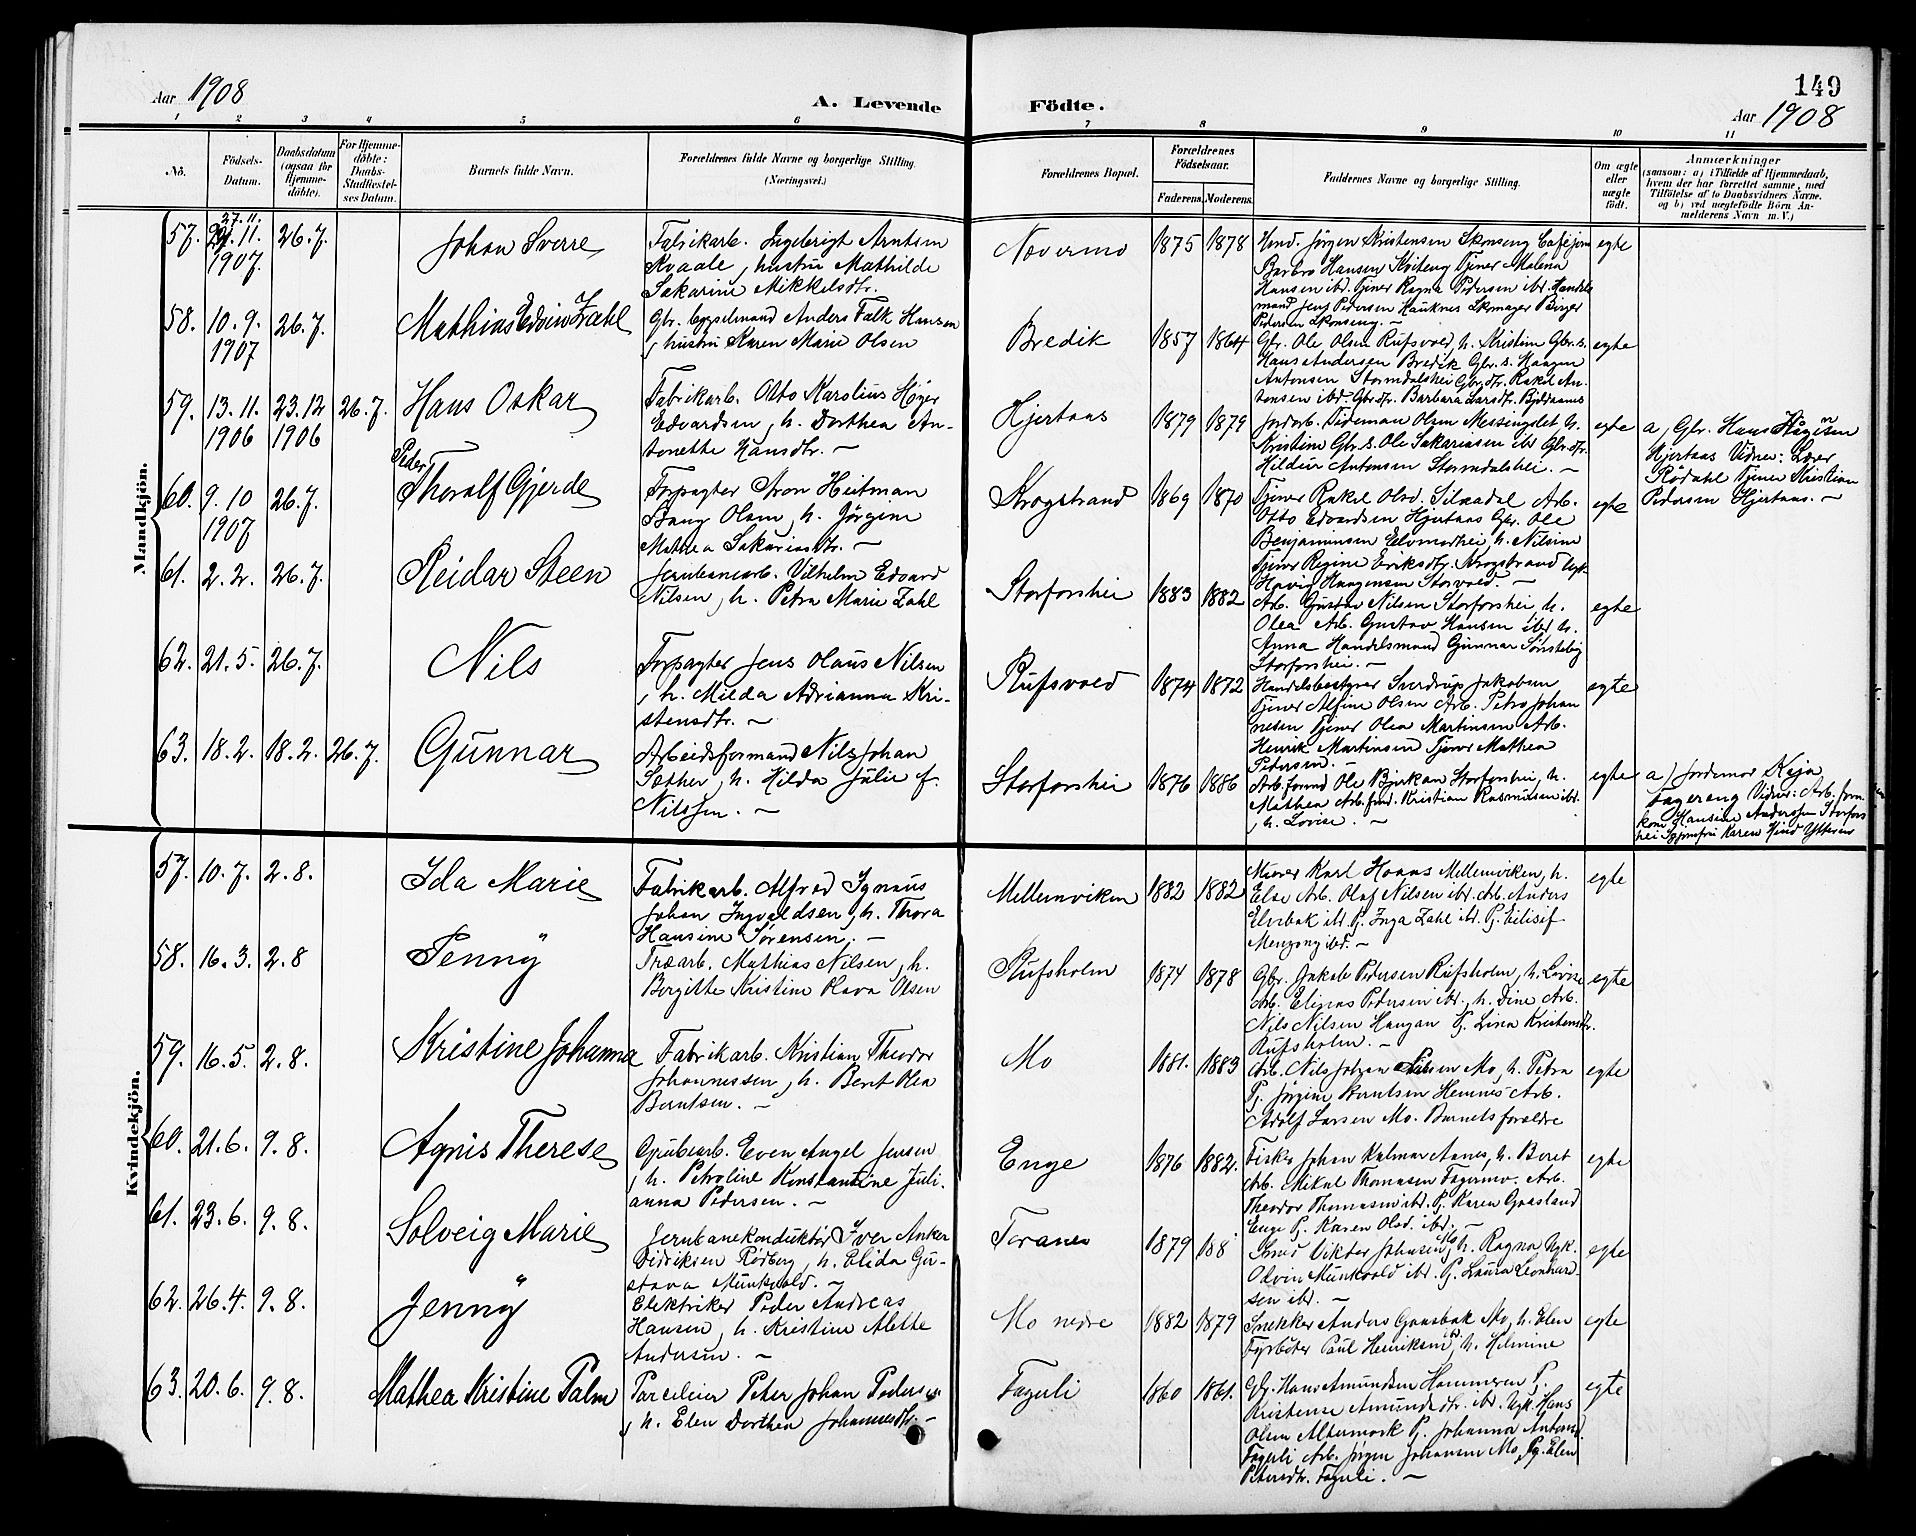 149
Aar 1908
A. Levende
Födte.
Aar 1908
1 2 3 4 5 6 7 8 9 10 11
No.
Födsels-
Datum.
Daabsdatum
(ogsaa for
Hjemme-
döbte).
For Hjemme-
döbte:
Daabs-
Stadfæstel-
ses Datum.
Barnets fulde Navn.
Forældrenes fulde Navne og borgerlige Stilling.
(Næringsvei.)
Forældrenes Bopæl.
Forældrenes
Födselsaar.
Faderens. Moderens.
Faddernes Navne og borgerlige Stilling.
Om ægte
eller
uægte
födt.
Anmærkninger
(saasom: a) i Tilfælde af Hjemmedaab,
hvem der har forrettet samme, med
Tilföielse af to Daabsvidners Navne.
og b) ved uægtefödte Börn An-
melderens Navn m. V.)
Mandkjön.
57. 27.11. 1907. 26.7. Johan Sverre
Fabrikarb. Ingebrigt Arntsen
Kvaale, hustru Mathilde
Sakarine Mikkelsdtr.
Nævermo 1875 1878
Hmd. Jörgen Kristensen Skonseng Cafejom
Barbro Hansen Tjener Malena
Hansen ibd. Tjener Ragna Pedersen ibr. Handels
mand Jens Pedersen Hauknes Skomager Birger
Pedersen Skonseng. –
egte
58. 10.9. 1907 26.7. Mathias Edvin Zahl
Gbr. Anders Falk Hansen
, hustru Karen Marie Olsen
Bredik 1857 1864
Gbr. Ole Olsen Rufsvold, h. Kristine Gbr.s.
Hans Andersen Bredik Gbr. s. Haagen
Antonsen Stormdalshei Gbrdtr. Rakel An-
tonsen ibd. Gbrdtr. Barbara Larsdtr.
egte
59. 13.11. 1906 23.12 1906 26.7. Hans Oskar
Fabrikarb. Otto Karolius Høyer
Edvardsen, h. Dorthea An-
tonette Hansdtr. –
Hjertaas 1879 1879
Jordarb. Tideman Olsen Messingslet h.
Kristine Gbr. s. Ole Sakariasen ibr Gbrdtr.
Hildur Antonsen Stormdalshei. –
egte
a, Gbr. Hans
Hjertaas Vidner: Lærer
Rödahl Tjener Kristian
Pedersen Hjertaas. –
60. 9.10 1907 26.7. Peder
Thoralf Gjerde
Forpagter Aron Heitman
Bang Olsen, h. Jörgine
Mathea Sakariasdtr. –
Krogstrand 1869 1870
Tjener Rakel Olsd. Silaadal Arb.
Otto Edvardsen Hjertaas Gbr. Ole
Benjaminsen Elvmohei, h. Nilsine
Tjener Regine Eriksdtr. Krogstrand
Haagensen Storvold. –
egte
61. 2.2. 26.7. Reidar Steen
Jernbanearb. Vilhelm Edvard
Nilsen, h. Petra Marie Zahl
Storforshei 1883 1882
Arb. Gustav Nilsen Storforshei, h.
Olea Arb. Gustav Hansen ibr h.
Anna Handelsmand Gunnar Sönsteby
Storforshei. –
egte
62. 21.5. 26.7. Nils
Forpagter Jens Olaus Nilsen
, h. Milda Adrianna Kri-
stensdtr. –
Rufsvold 1874 1872
Handelsbestyrer Sverdrup Jakobsen
Tjener Alfine Olsen Arb. Petro Johan
nesen Tjener Olea Martinsen Arb.
Henrik Martinsen Tjener Mathea
Pedersen. –
egte
63. 18.2. 18.2. 26.7. Gunnar
Arbeidsformand Nils Johan
Sæther, h. Hilda Julie f.
Nilssen. –
Storforshei 1876 1886
Arb.formd Ole Bjerkan Storforshei, h.
Mathea Arb.fmd. Kristian Rasmussen ibr.
, h. Lovise. –
egte
a) Jordemor Keja
Fagereng Vidner: Arb.form.
kone Hansine Anderssen Storfors
hei Karen Hind Ytteren
Kvindekjön.
57. 10.7. 2.8. Ida Marie
Fabrikarb. Alfred Ignaus
Johan Ingvaldsen, h. Thora
Hansine Sørensen. –
Mellemviken 1882 1882
Murer Karl Haans Mellemviken, h.
Else Arb. Olaf Nilsen ibr. Arb. Anders
Elvebak ibr P. Inga Zahl ibr. P. Eilisif
Menzong ibd. –
egte
58. 16.3. 2.8 Jenny
Træarb. Mathias Nilsen, h.
Bergitte Kristine Olava Olsen
Rufsholm 1874 1878
Gbr. Jakob Pedersen Rufsholm, h. Lovise
Arb. Elizeas Pedersen ibr, h. Dine Arb.
Nils Nilsen Haugan P. Lina Kristensdtr.
Rufsholm. –
egte
59. 16.5. 2.8. Kristine Johanna
Fabrikarb. Kristian Theodor
Johannessen, h. Beret Olea
Berntsen. –
Mo 1881. 1883
Arb. Nils Johan Nilsen Mo, h. Petra
P. Jörgine Berntsen Hemnes Arb.
Adolf Larsen Mo. Barnets foreldre
egte
60. 21.6. 9.8. Agnis Therese
Grubearb. Even Angel Jensen
, h. Petroline Konstantine Juli-
anna Pedersen. –
Enge 1876 1882.
Fisker Johan Kalmar Aanes, h. Beret
Arb. Mikal Thomasen Fagermo. Arb.
Theodor Thomasen ibr. P. Karen Graasland
Enge P. Karen Olsd. ibr. –
egte
61. 23.6. 9.8. Solveig Marie
Jernbanekonduktör Iver Anker
Didriksen Rödberg, h. Elida Gu-
stava Munkvold. –
Toranes 1879 188
Smed Viktor Johnsen Mo, h. Ragna Ugk.
Odvin Munkvold ibr. P. Laura Leonhard-
sen ibr. –
egte
62. 26.4. 9.8. Jenny
Elektriker Peder Andreas
Hansen, h. Kristine Alette
Andersen. –
Mo nedre 1882 1879
Snekker Anders Graasbak Mo, h. Elen
Fyrböter Paul Henriksen ibr., h. Helmine
egte
63. 20.6. 9.8. Mathea Kristine Palm
Parceleier Peter Johan Peders
, h. Elen Dorthea Johannesdtr. –
Faguli 1860 1861.
Gbr. Hans Amundsen Hammeren P.
Kristense Amundsdtr. ibr. Ugk. Hans
Olsen Altermark P. Johanna Antonsd.
Faguli Arb. Jörgen Johansen Mo, Pg. Elen
Petersdtr. Faguli. –
egte